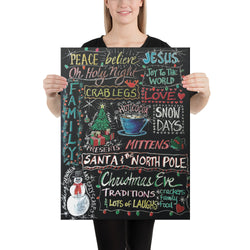 PEACE, believe
JESUS
Oh, Holy Night
JOY TO THE
WORLD
CRAB LEGS
LOVE
FAMILY
SNOW
DAYS
PRESENTS
MITTENS
SANTA & THE NORTH POLE
Christmas Eve
TRADITIONS
& LOTS of LAUGHS
crackers
Family
Food